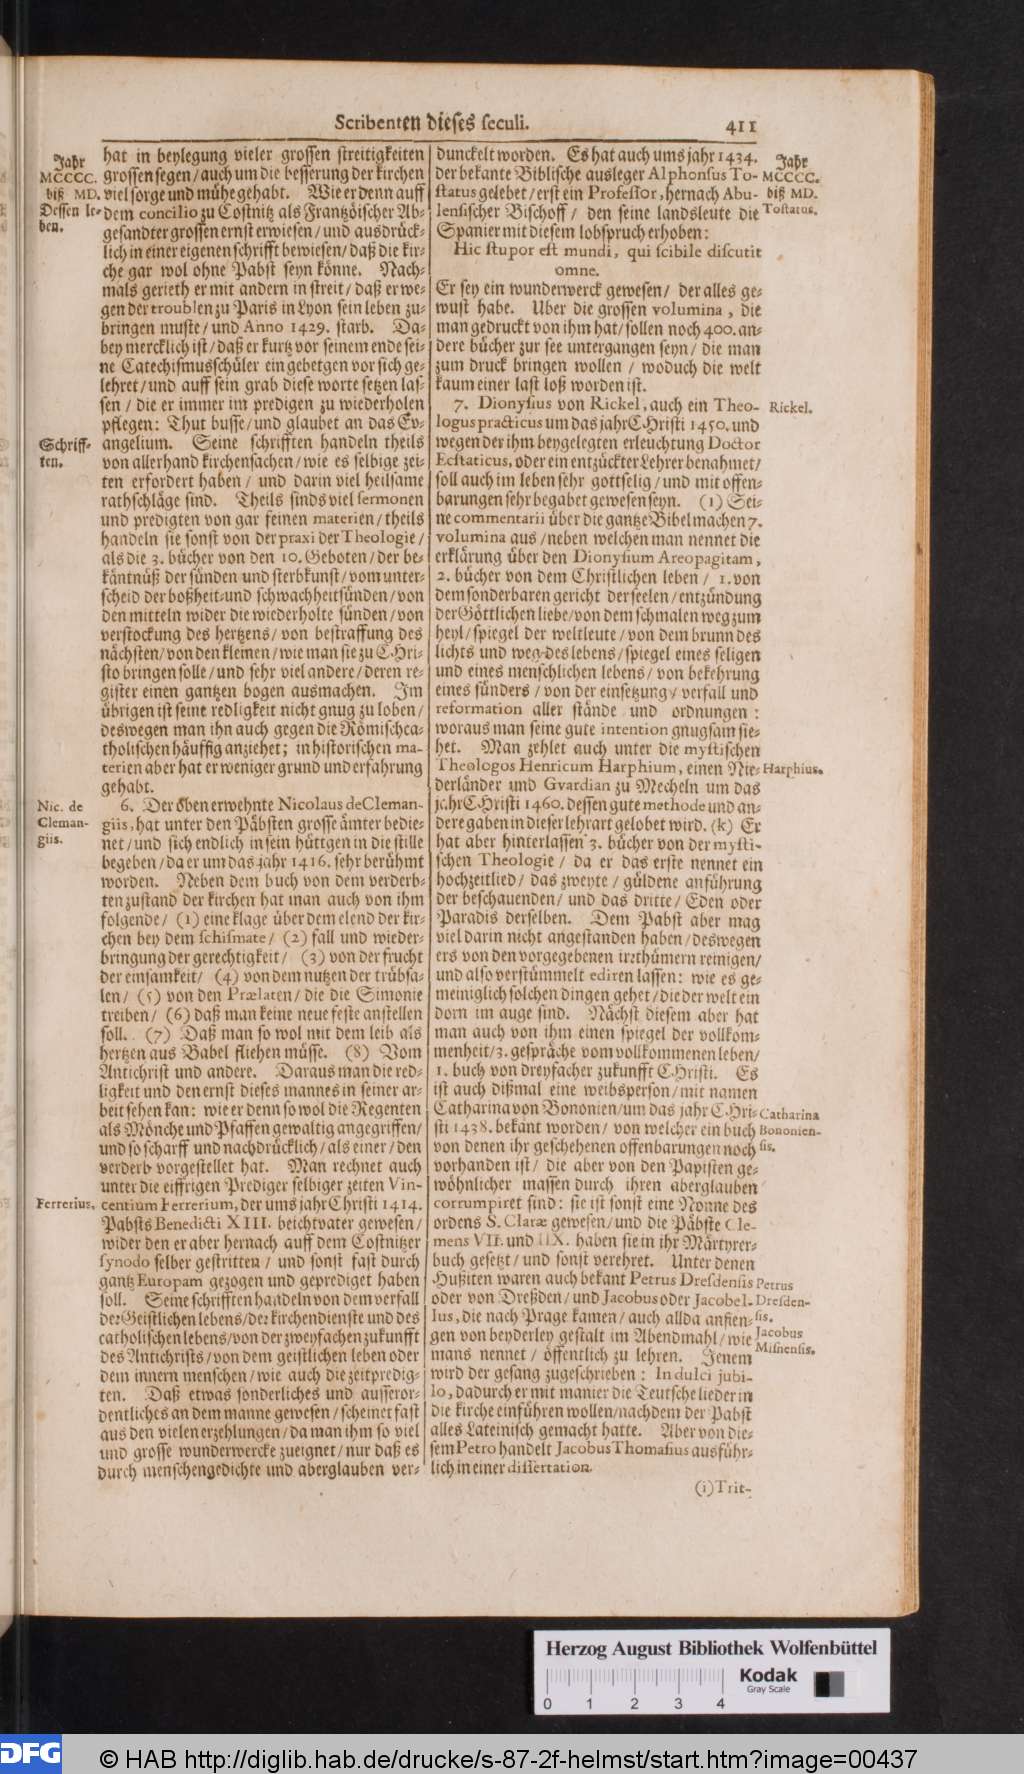 Scribenten dieses seculi.
411
Jahr
MCCCC.
biß MD.
Dessen le-
ben.
hat in beylegung vieler grossen streitigkeiten
grossen segen/ auch um die besserung der kirchen
viel sorge und mühe gehabt. Wie er denn auff
dem concilio zu Costnitz als Frantzöischer Ab-
gesandter grossen ernst erwiesen/ und ausdrück-
lich in einer eigenen schrifft bewiesen/ daß die kir-
che gar wol ohne Pabst seyn könne. Nach-
mals gerieth er mit andern in streit/ daß er we-
gen der troublen zu Paris in Lyon sein leben zu-
bringen muste/ und Anno 1429. starb. Da-
bey mercklich ist/ daß er kurtz vor seinem ende sei-
ne Catechismusschüler ein gebetgen vor sich ge-
lehret/ und auff sein grab diese worte setzen las-
sen/ die er immer im predigen zu wiederholen
pflegen: Thut busse/ und glaubet an das Ev-
Schriff-
ten.
angelium. Seine schrifften handeln theils
von allerhand kirchensachen/ wie es selbige zei-
ten erfordert haben/ und darin viel heilsame
rathschläge sind. Theils sinds viel sermonen
und predigten von gar feinen materien/ theils
handeln sie sonst von der praxi der Theologie/
als die 3. bücher von den 10. Geboten/ der be-
käntnüß der sünden und sterbkunst/ vom unter-
scheid der boßheit-und schwachheitsünden/ von
den mitteln wider die wiederholte sünden/ von
verstockung des hertzens/ von bestraffung des
nächsten/ von den kleinen/ wie man sie zu CHri-
sto bringen solle/ und sehr viel andere/ deren re-
gister einen gantzen bogen ausmachen. Im
übrigen ist seine redligkeit nicht gnug zu loben/
deswegen man ihn auch gegen die Römischca-
tholischen häuffig anziehet; in historischen ma-
terien aber hat er weniger grund und erfahrung
gehabt.
Nic. de
Cleman-
giis.
6. Der oben erwehnte Nicolaus de Cleman-
giis, hat unter den Päbsten grosse ämter bedie-
net/ und sich endlich in sein hüttgen in die stille
begeben/ da er um das jahr 1416. sehr berühmt
worden. Neben dem buch von dem verderb-
ten zustand der kirchen hat man auch von ihm
folgende/ (1) eine klage über dem elend der kir-
chen bey dem schismate/ (2) fall und wieder-
bringung der gerechtigkeit/ (3) von der frucht
der einsamkeit/ (4) von dem nutzen der trübsa-
len/ (5) von den Prælaten/ die die Simonie
treiben/ (6) daß man keine neue feste anstellen
soll. (7) Daß man so wol mit dem leib als
hertzen aus Babel fliehen müsse. (8) Vom
Antichrist und andere. Daraus man die red-
ligkeit und den ernst dieses mannes in seiner ar-
beit sehen kan: wie er denn so wol die Regenten
als Mönche und Pfaffen gewaltig angegriffen/
und so scharff und nachdrücklich/ als einer/ den
verderb vorgestellet hat. Man rechnet auch
unter die eiffrigen Prediger selbiger zeiten Vin-
Ferrerius.
centium Ferrerium, der ums jahr Christi 1414.
Pabsts Benedicti XIII. beichtvater gewesen/
wider den er aber hernach auff dem Costnitzer
synodo selber gestritten/ und sonst fast durch
gantz Europam gezogen und geprediget haben
soll. Seine schrifften handeln von dem verfall
des Geistlichen lebens/ der kirchendienste und des
catholischen lebens/ von der zweyfachen zukunfft
des Antichrists/ von dem geistlichen leben oder
dem innern menschen/ wie auch die zeitpredig-
ten. Daß etwas sonderliches und ausseror-
dentliches an dem manne gewesen/ scheinet fast
aus den vielen erzehlungen/ da man ihm so viel
und grosse wunderwercke zueignet/ nur daß es
durch menschengedichte und aberglauben ver-
dunckelt worden. Es hat auch ums jahr 1434.
der bekante Biblische ausleger Alphonsus To-
status gelebet/ erst ein Professor, hernach Abu-
lensischer Bischoff/ den seine landsleute die
Spanier mit diesem lobspruch erhoben:
Jahr
MCCCC.
biß MD.
Tostatus.
Hic stupor est mundi, qui scibile discutit
omne.
Er sey ein wunderwerck gewesen/ der alles ge-
wust habe. Uber die grossen volumina, die
man gedruckt von ihm hat/ sollen noch 400. an-
dere bücher zur see untergangen seyn/ die man
zum druck bringen wollen/ woduch die welt
kaum einer last loß worden ist.
7. Dionysius von Rickel, auch ein Theo-
Rickel.
logus practicus um das jahr CHristi 1450. und
wegen der ihm beygelegten erleuchtung Doctor
Ecstaticus, oder ein entzückter Lehrer benahmet/
soll auch im leben sehr gottselig/ und mit offen-
barungen sehr begabet gewesen seyn. (i) Sei-
ne commentarii über die gantze Bibel machen 7.
volumina aus/ neben welchen man nennet die
erklärung über den Dionysium Areopagitam,
2. bücher von dem Christlichen leben/ 1. von
dem sonderbaren gericht der seelen/ entzündung
der Göttlichen liebe/ von dem schmalen weg zum
heyl/ spiegel der weltleute/ von dem brunn des
lichts und weg des lebens/ spiegel eines seligen
und eines menschlichen lebens/ von bekehrung
eines sünders/ von der einsetzung/ verfall und
reformation aller stände und ordnungen:
woraus man seine gute intention gnugsam sie-
het. Man zehlet auch unter die mystischen
Theologos Henricum Harphium, einen Nie-
Harphius.
derländer und Gvardian zu Mecheln um das
jahr CHristi 1460. dessen gute methode und an-
dere gaben in dieser lehrart gelobet wird. (k) Er
hat aber hinterlassen 3. bücher von der mysti-
schen Theologie/ da er das erste nennet ein
hochzeitlied/ das zweyte/ güldene anführung
der beschauenden/ und das dritte/ Eden oder
Paradis derselben. Dem Pabst aber mag
viel darin nicht angestanden haben/ deswegen
ers von den vorgegebenen irrthümern reinigen/
und also verstümmelt ediren lassen: wie es ge-
meiniglich solchen dingen gehet/ die der welt ein
dorn im auge sind. Nächst diesem aber hat
man auch von ihm einen spiegel der vollkom-
menheit/ 3. gespräche vom vollkommenen leben/
1. buch von dreyfacher zukunfft CHristi. Es
ist auch dißmal eine weibsperson/ mit namen
Catharina von Bononien/ um das jahr CHri-
Catharina
Bononien-
sis.
sti 1438. bekant worden/ von welcher ein buch
von denen ihr geschehenen offenbarungen noch
vorhanden ist/ die aber von den Papisten ge-
wöhnlicher massen durch ihren aberglauben
corrumpiret sind: sie ist sonst eine Nonne des
ordens S. Claræ gewesen/ und die Päbste Cle-
mens VII. und IIX. haben sie in ihr Märtyrer-
buch gesetzt/ und sonst verehret. Unter denen
Hußiten waren auch bekant Petrus Dresdensis
Petrus
Dresden-
sis.
oder von Dreßden/ und Jacobus oder Jacobel-
lus, die nach Prage kamen/ auch allda anfien-
gen von beyderley gestalt im Abendmahl/ wie
Jacobus
Misnensis.
mans nennet/ öffentlich zu lehren. Jenem
wird der gesang zugeschrieben: In dulci jubi-
lo, dadurch er mit manier die Teutsche lieder in
die kirche einführen wollen/ nachdem der Pabst
alles Lateinisch gemacht hatte. Aber von die-
sem Petro handelt Jacobus Thomasius ausführ-
lich in einer dissertation.
(i) Trit-
Herzog August Bibliothek Wolfenbüttel
Kodak
Gray Scale
0 1 2 3 4
DFG
© HAB http://diglib.hab.de/drucke/s-87-2f-helmst/start.htm?image=00437